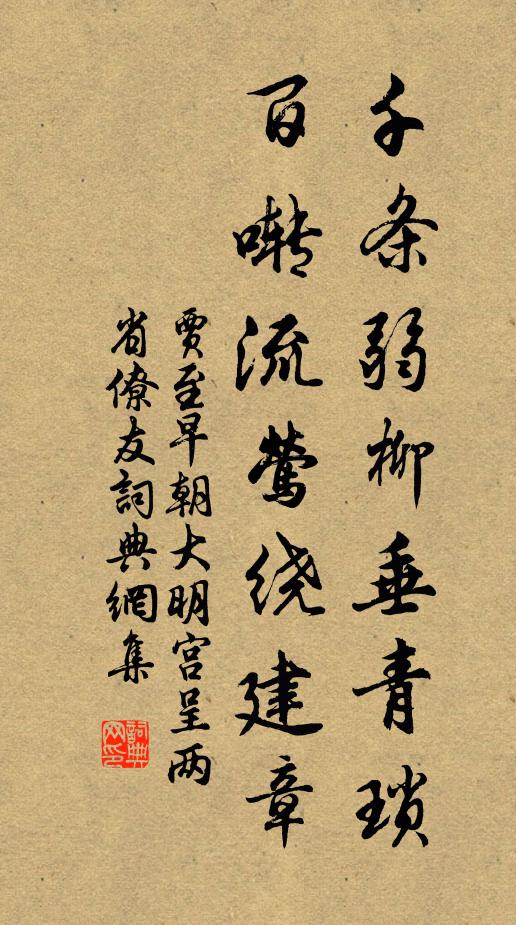 千条弱柳垂青琐
百啭流莺绕建章
贾至早朝大明宫呈两
省僚友词典網集
詞典網印